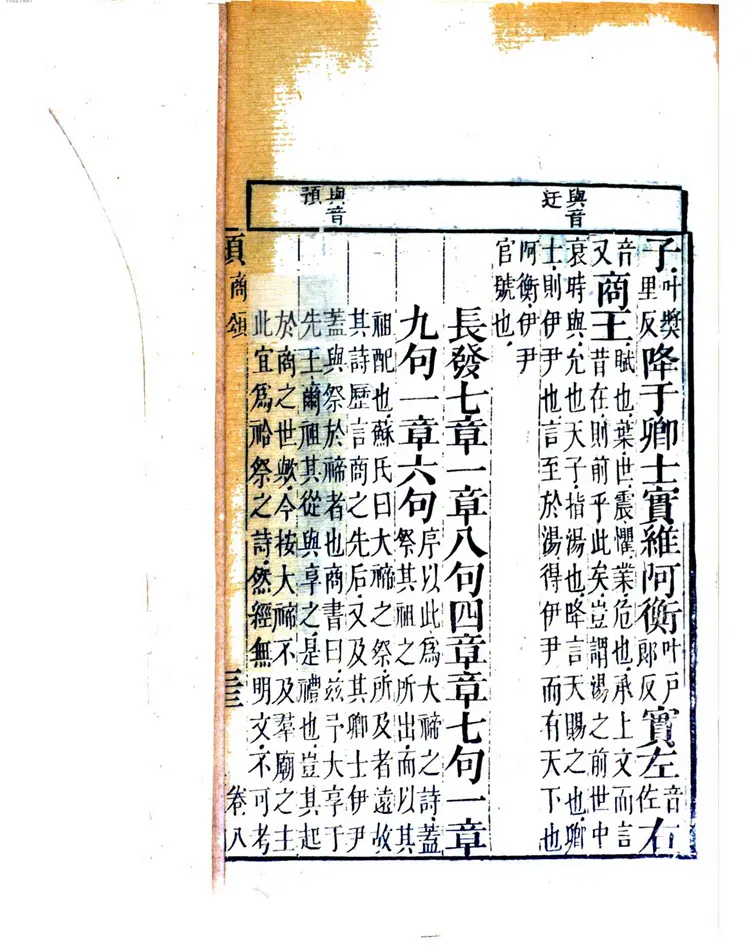 與音
迂
與音
預
子叶獎里反降于卿士實維阿衡叶戶郎反實左音佐右
音又商王賦也葉世震懼業危也承上文而言
昔在則前乎此矣豈謂湯之前世中
衰時與允也天子指湯也降言天賜之也卿
士則伊尹也言至於湯得伊尹而有天下也
阿衡伊尹
官號也
長發七章一章八句四章章七句一章
九句一章六句序以此爲大禘之詩蓋
祭其祖之所出而以其
祖配也蘇氏曰大禘之祭所及者遠故
其詩歷言商之先后又及其卿士伊尹
蓋與祭於禘者也商書曰茲予大享于
先王爾祖其從與享之是禮也豈其起
於商之世歟今按大禘不及羣廟之主
此宜爲祫祭之詩然經無明文不可考
商頌
卷八